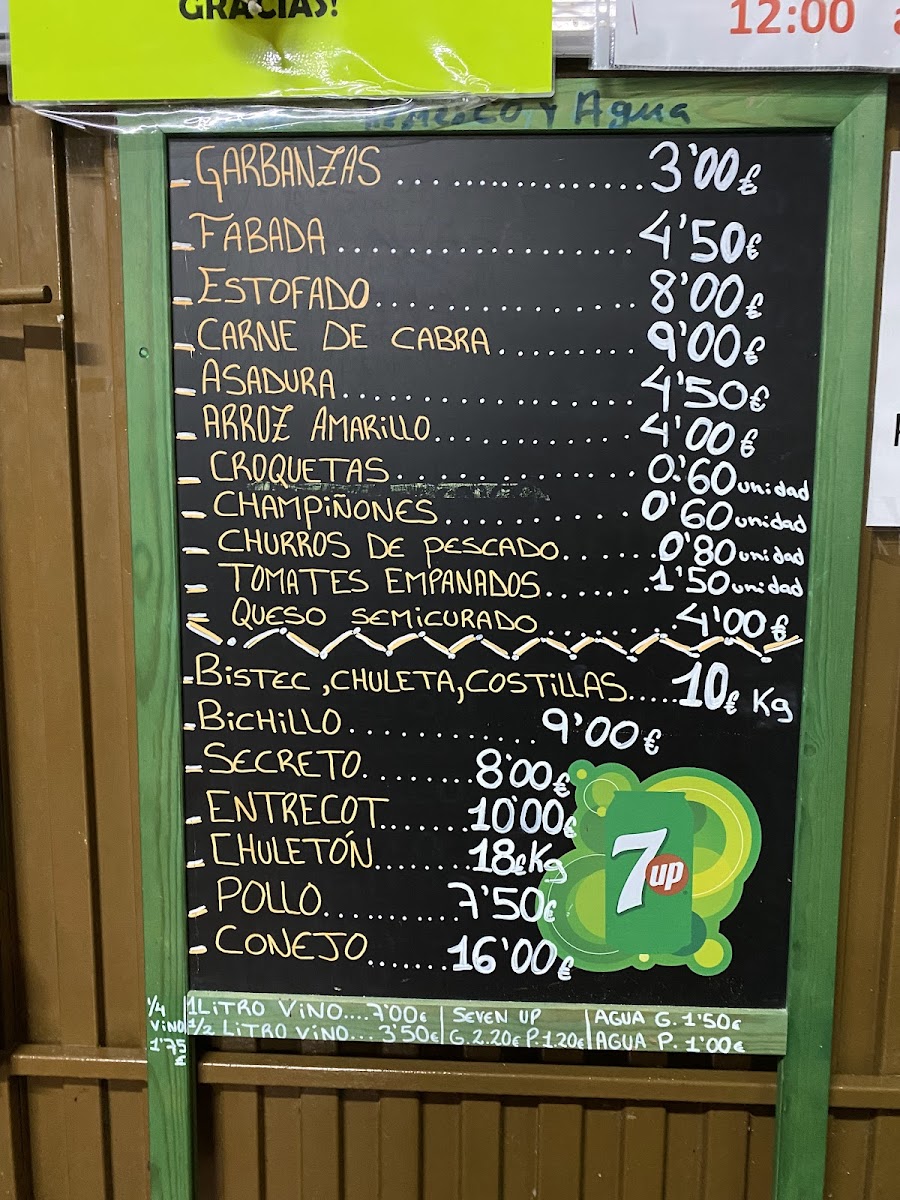 GRACIAS!
12:00 a
Y Agua
- GARBANZAS ... ................ 3'00€
- FABADA .................. 4'50€
- ESTOFADO ................ 8'00€
- CARNE DE CABRA ......... 9'00€
- ASADURA .................. 4'50€
- ARROZ AMARILLO ............. 4'00€
- CROQUETAS ............... 0'60 unidad
- CHAMPIÑONES .......... 0'60 unidad
- CHURROS DE PESCADO ....... 0'80 unidad
- TOMATES EMPANADOS ....... 1'50 unidad
- QUESO SEMICURADO ....... 4'00€
- BISTEC, CHULETA, COSTILLAS .... 10€ Kg
- BICHILLO ............. 9'00€
- SECRETO ........ 8'00€
- ENTRECOT ...... 10'00€
- CHULETÓN ...... 18€Kg
- POLLO ......... 7'50€
- CONEJO ...... 16'00€
7up
1/4 VINO 1'75 €
1 LITRO VINO .... 7'00€ | SEVEN UP | AGUA G. 1'50€
1/2 LITRO VINO ... 3'50€ | G. 2.20€ P. 1.20€ | AGUA P. 1'00€